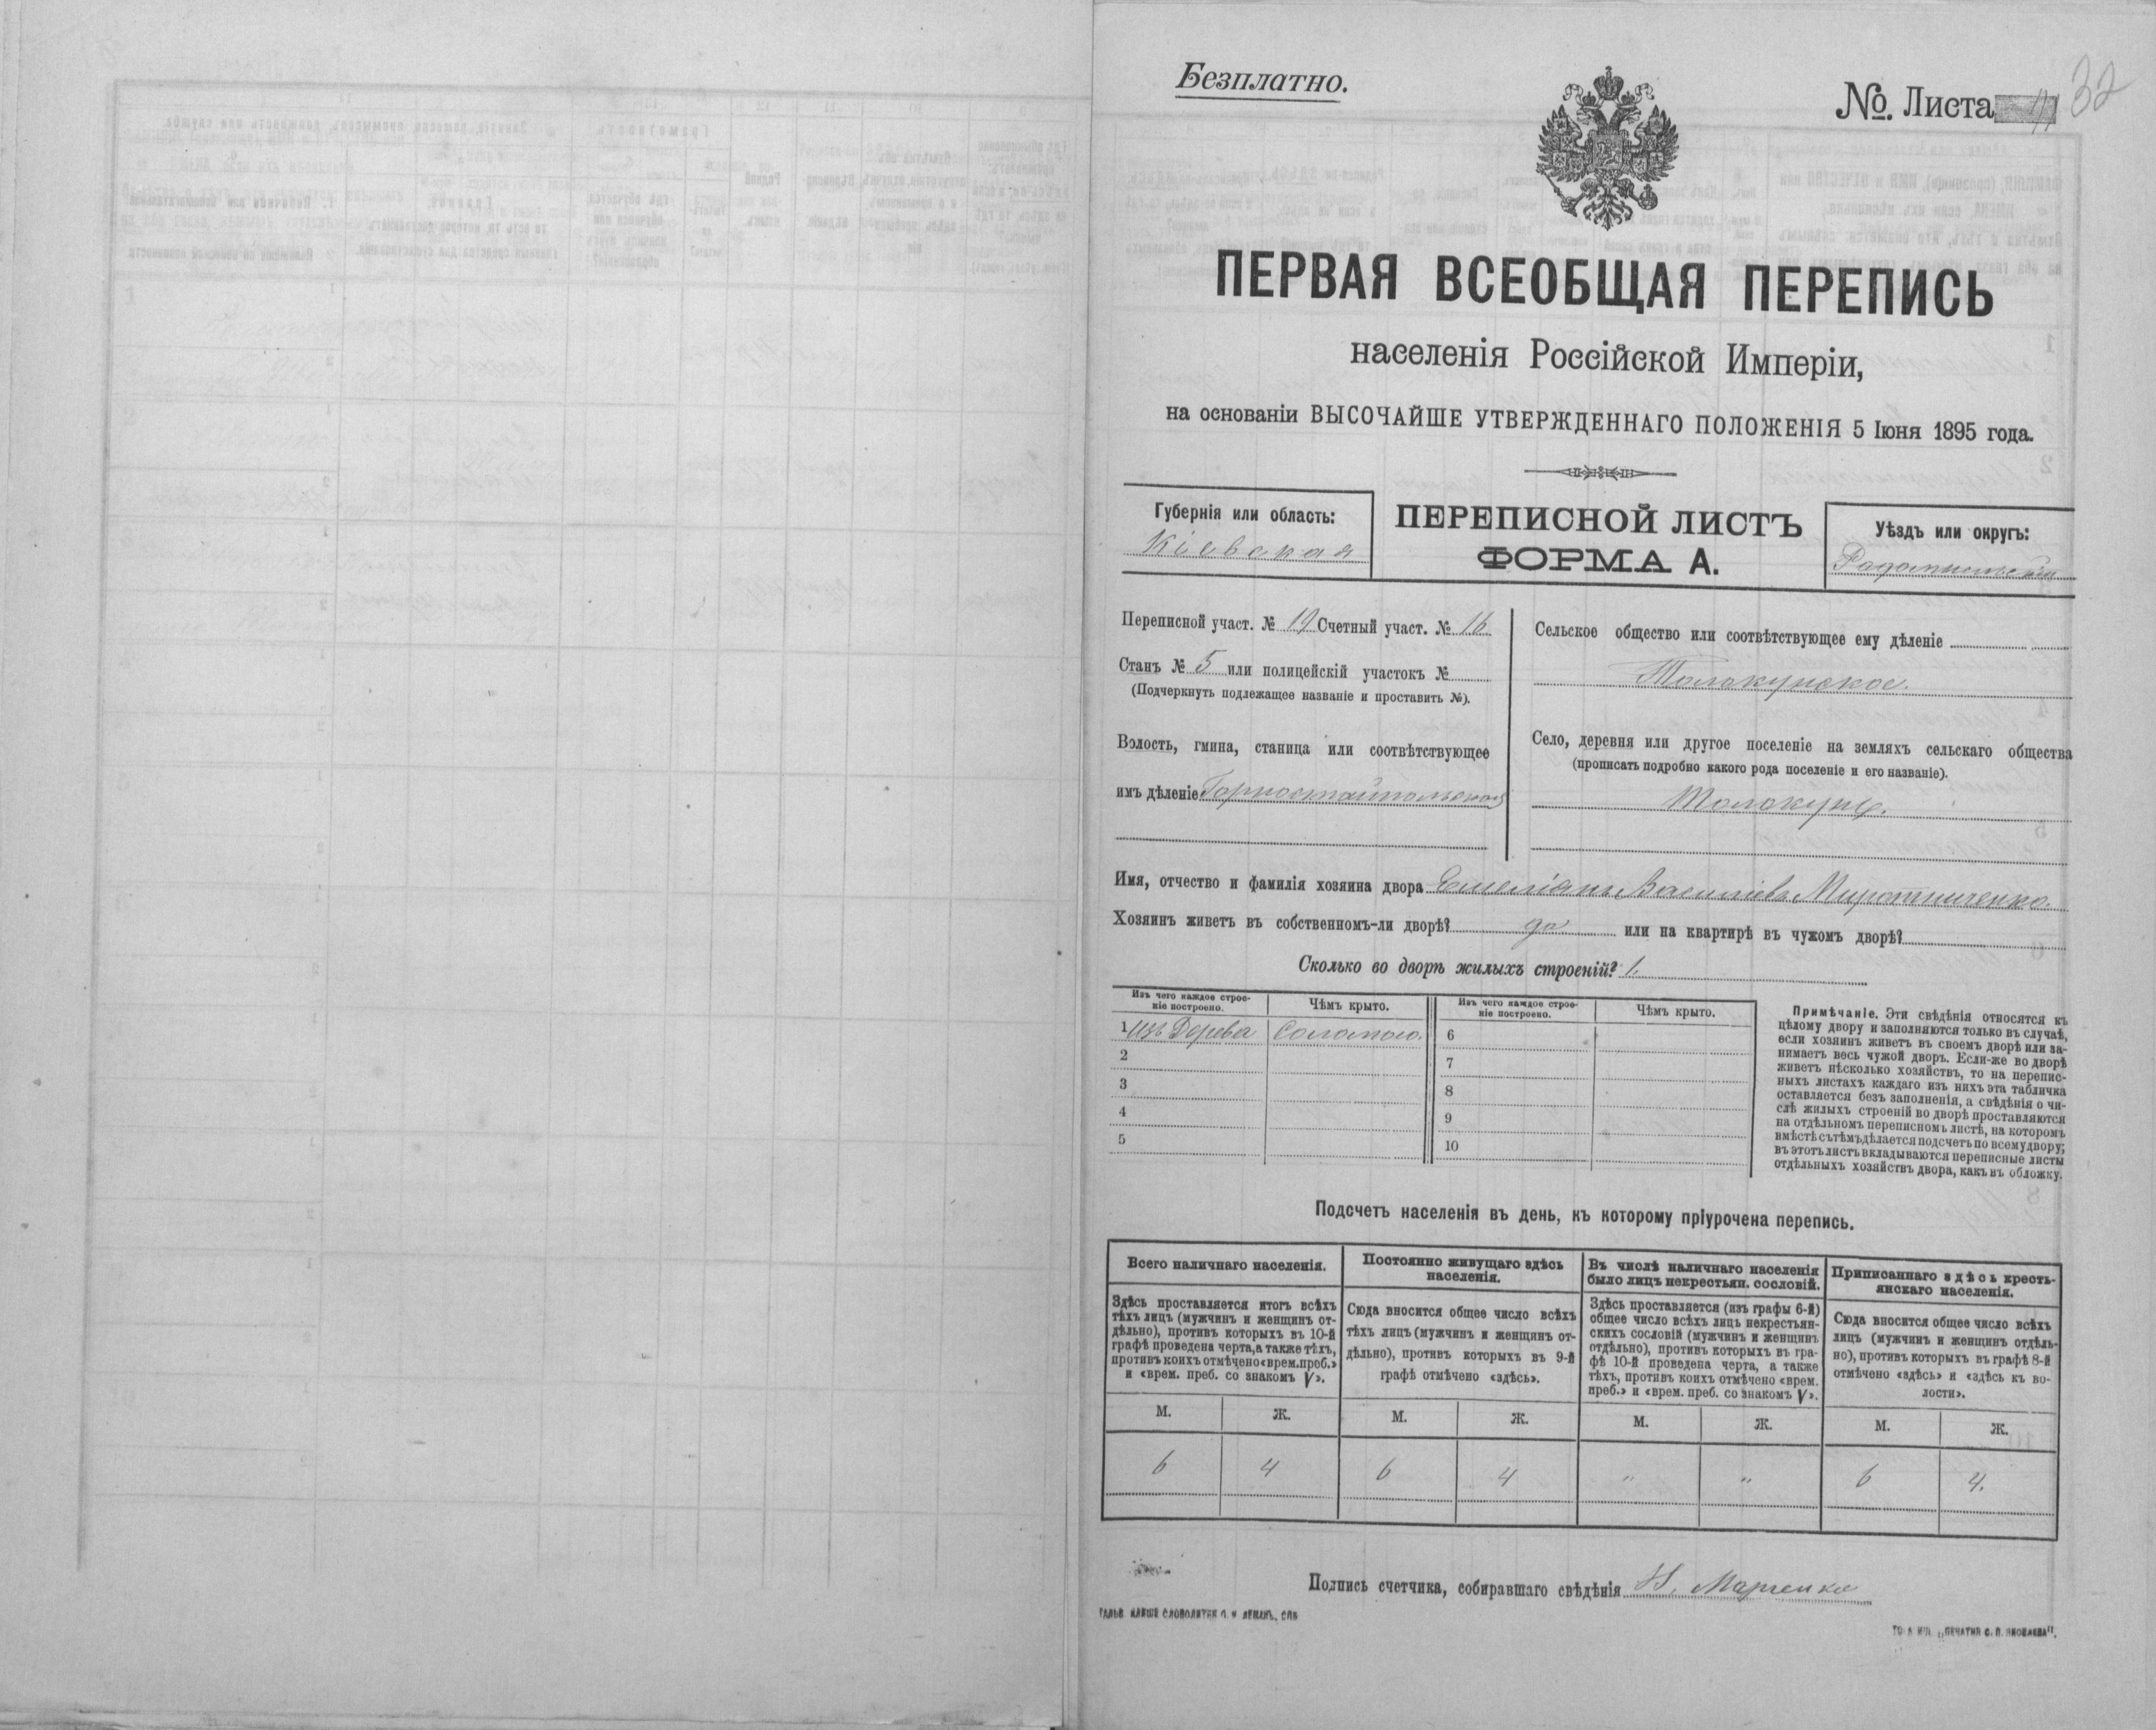 Безплатно.
№. Листа 11 32
ПЕРВАЯ ВСЕОБЩАЯ ПЕРЕПИСЬ
населенія Россійской Имперіи,
на основаніи ВЫСОЧАЙШЕ УТВЕРЖДЕННАГО ПОЛОЖЕНІЯ 5 Іюня 1895 года.
Губернія или область:
Кіевская
ПЕРЕПИСНОЙ ЛИСТЪ
ФОРМА А.
Уѣздъ или округъ:
Радомысльскій
Переписной участ. № 19 Счетный участ. № 16
Станъ № 5 или полицейскій участокъ №
(Подчеркнуть подлежащее названіе и проставить №).
Волость, гмина, станица или соотвѣтствующее
имъ дѣленіе Горностайпольская
Сельское общество или соотвѣтствующее ему дѣленіе
Толокунское.
Село, деревня или другое поселеніе на земляхъ сельскаго общества
(прописать подробно какого рода поселеніе и его названіе).
Толокунь.
Имя, отчество и фамилія хозяина двора Емеліянъ Василіевъ Миротниченко.
Хозяинъ живетъ въ собственномъ-ли дворѣ? да или на квартирѣ въ чужомъ дворѣ?
Сколько во дворѣ жилыхъ строеній? 1.
Изъ чего каждое строе-
ніе построено.
Чѣмъ крыто.
Изъ чего каждое строе-
ніе построено.
Чѣмъ крыто.
1 Изъ Дерева Соломою. 6
2 7
3 8
4 9
5 10
Примѣчаніе. Эти свѣдѣнія относятся къ
цѣлому двору и заполняются только въ случаѣ,
если хозяинъ живетъ въ своемъ дворѣ или за-
нимаетъ весь чужой дворъ. Если-же во дворѣ
живетъ нѣсколько хозяйствъ, то на перепис-
ныхъ листахъ каждаго изъ нихъ эта табличка
оставляется безъ заполненія, а свѣдѣнія о чи-
слѣ жилыхъ строеній во дворѣ проставляются
на отдѣльномъ переписномъ листѣ, на которомъ
вмѣстѣ съ тѣмъ дѣлается подсчетъ по всему двору;
въ этотъ листъ вкладываются переписные листы
отдѣльныхъ хозяйствъ двора, какъ въ обложку.
Подсчетъ населенія въ день, къ которому пріурочена перепись.
Всего наличнаго населенія.
Здѣсь проставляется итогъ всѣхъ
тѣхъ лицъ (мужчинъ и женщинъ от-
дѣльно), противъ которыхъ въ 10-й
графѣ проведена черта, а также тѣхъ,
противъ коихъ отмѣчено «врем. преб.»
и «врем. преб. со знакомъ V».
Постоянно живущаго здѣсь
населенія.
Сюда вносится общее число всѣхъ
тѣхъ лицъ (мужчинъ и женщинъ от-
дѣльно), противъ которыхъ въ 9-й
графѣ отмѣчено «здѣсь».
Въ числѣ наличнаго населенія
было лицъ некрестьян. сословій.
Здѣсь проставляется (изъ графы 6-й)
общее число всѣхъ лицъ некрестьян-
скихъ сословій (мужчинъ и женщинъ
отдѣльно), противъ которыхъ въ гра-
фѣ 10-й проведена черта, а также
тѣхъ, противъ коихъ отмѣчено «врем.
преб.» и «врем. преб. со знакомъ V».
Приписаннаго здѣсь кресть-
янскаго населенія.
Сюда вносится общее число всѣхъ
лицъ (мужчинъ и женщинъ отдѣль-
но), противъ которыхъ въ графѣ 8-й
отмѣчено «здѣсь» и «здѣсь къ во-
лости».
М. Ж. М. Ж. М. Ж. М. Ж.
6 4 6 4 " " 6 4.
Подпись счетчика, собиравшаго свѣдѣнія Н. Марченко